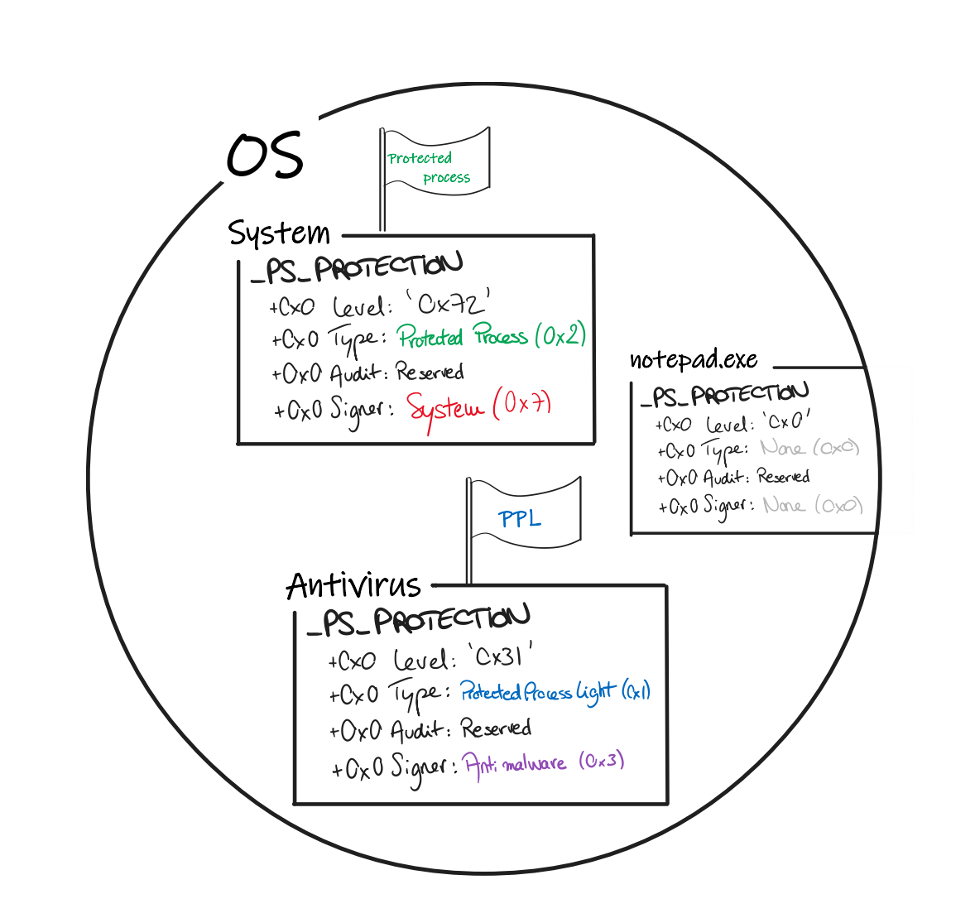 OS
Protected
process
System
_PS_PROTECTION
+0x0 Level: '0x72'
+0x0 Type: Protected Process (0x2)
+0x0 Audit: Reserved
+0x0 Signer: System (0x7)
notepad.exe
_PS_PROTECTION
+0x0 Level: '0x0'
+0x0 Type: None (0x0)
+0x0 Audit: Reserved
+0x0 Signer: None (0x0)
PPL
Antivirus
_PS_PROTECTION
+0x0 Level: '0x31'
+0x0 Type: Protected Process Light (0x1)
+0x0 Audit: Reserved
+0x0 Signer: Antimalware (0x3)